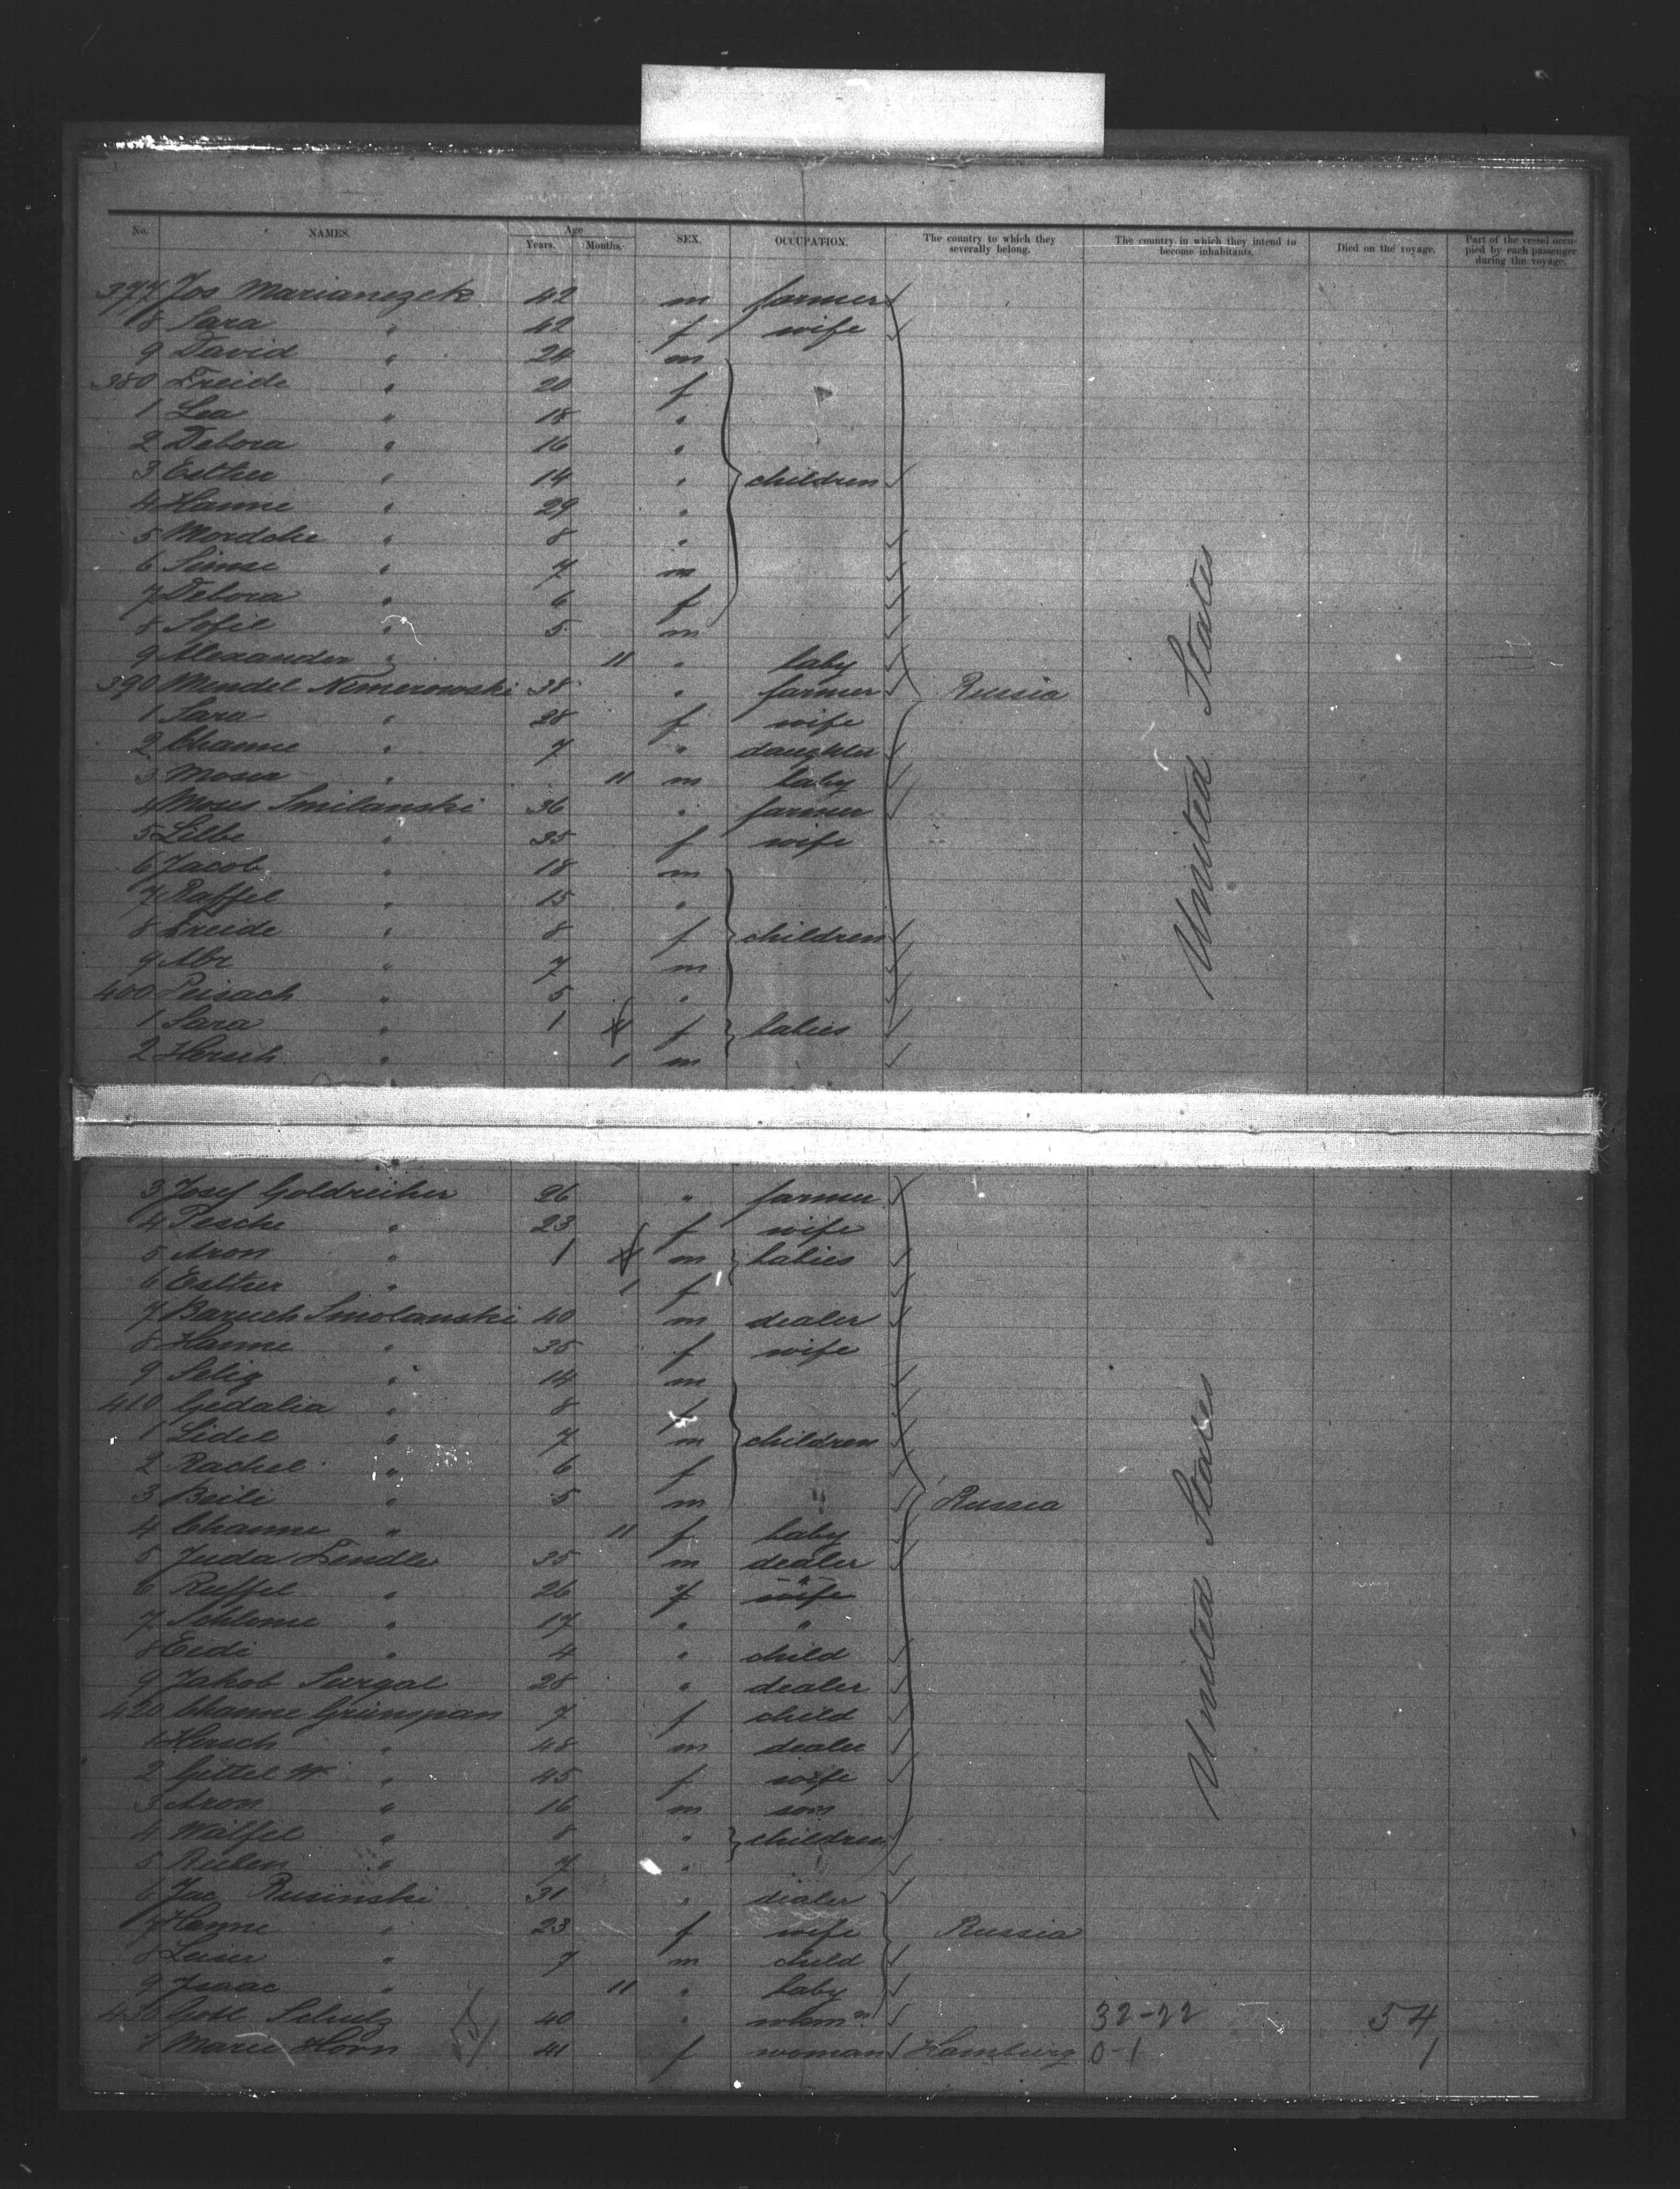 No. NAMES. Age Years. Months. SEX. OCCUPATION. The country to which they severally belong. The country in which they intend to become inhabitants. Died on the voyage. Part of the vessel occupied by each passenger during the voyage.
377 Jos Marianezek 42 m farmer
8 Sara " 42 f wife
9 David " 24 m
380 Freide " 20 f
1 Lea " 18 "
2 Debora " 16 "
3 Esther " 14 " children
4 Hanne " 29 "
5 Mordche " 8 "
6 Simse " 7 m
7 Debora " 6 f
8 Sofil " 5 m
9 Alexander " 11 " baby
390 Mendel Nemerowski 38 " farmer Russia
1 Sara " 28 f wife
2 Channe " 7 " daughter
3 " 11 m baby
4 Moses Smilanski 36 " farmer
5 " 35 f wife
6 Jacob " 18 m
7 Raffel " 15 "
8 Freide " 8 f children
9 Abr " 7 m
400 Peisach " 5 "
1 Sara " 1 f babies
2 Hersch " 1 m
United States
3 Josef Goldreiher 26 " farmer
4 Pesche " 23 f wife
5 Aron " 1 m babies
6 Esther " 1 f
7 Baruch Smolanski 40 m dealer
8 Hanne " 35 f wife
9 Selig " 14 m
410 Gedalia " 8 f
1 Lidel " 7 m children
2 Rachel " 6 f
3 Beili " 5 m Russia
4 Channe " 11 f baby
5 Juda Fendler 35 m dealer
6 Ruffel " 26 f wife
7 Schlome " 17 " "
8 Eidi " 4 " child
9 Jakob Surgal 28 " dealer
420 Channe Grünspan 7 f child
1 Hersch " 48 m dealer
2 Gittel " 45 f wife
3 Aron " 16 m son
4 Wölfel " 8 " children
5 Ruben " 7 "
6 Jac Rusinski 31 " dealer
7 Hanne " 23 f wife Russia
8 Leiser " 7 m child
9 Isaac " 11 " baby
430 Gotl Schulz 40 " wkmn 32-22 54
1 Marie Horn 41 f woman Hamburg 0-1 1
United States